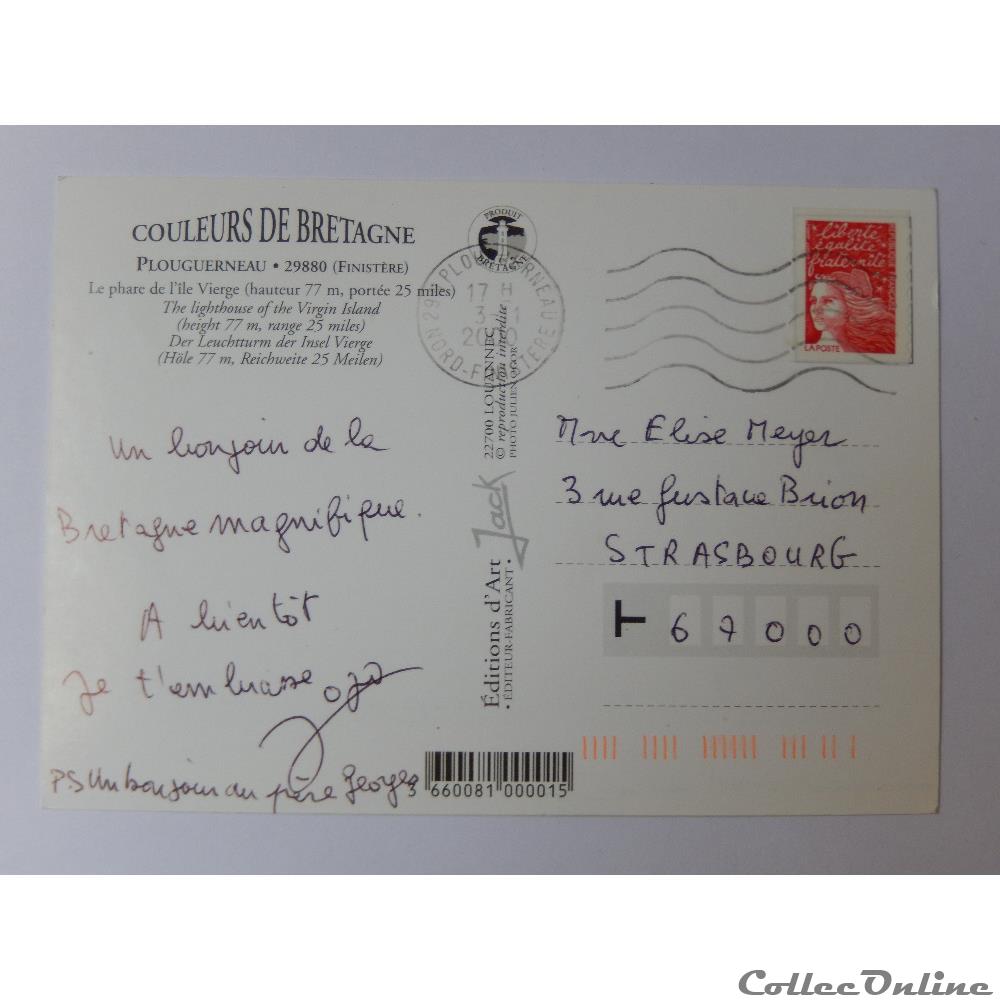 COULEURS DE BRETAGNE
PLOUGUERNEAU • 29880 (FINISTÈRE)
Le phare de l'île Vierge (hauteur 77 m, portée 25 miles)
The lighthouse of the Virgin Island
(height 77 m, range 25 miles)
Der Leuchtturm der Insel Vierge
(Höle 77 m, Reichweite 25 Meilen)
Un bonjour de la
Bretagne magnifique.
A bientôt
Je t'embrasse
P.S Un bonjour au père Georges
PRODUIT
BRETAGNE
29 PLOUGUERNEAU
17 H
NORD-FINISTERE
22700 LOUANNEC
© reproduction interdite
PHOTO JULIEN OGOR
Jack
Éditions d'Art
• ÉDITEUR-FABRICANT •
3 660081 000015
liberté
égalité
fraternité
LA POSTE
Mme Elise Meyer
3 rue Gustave Brion
STRASBOURG
T 67000
CollecOnline